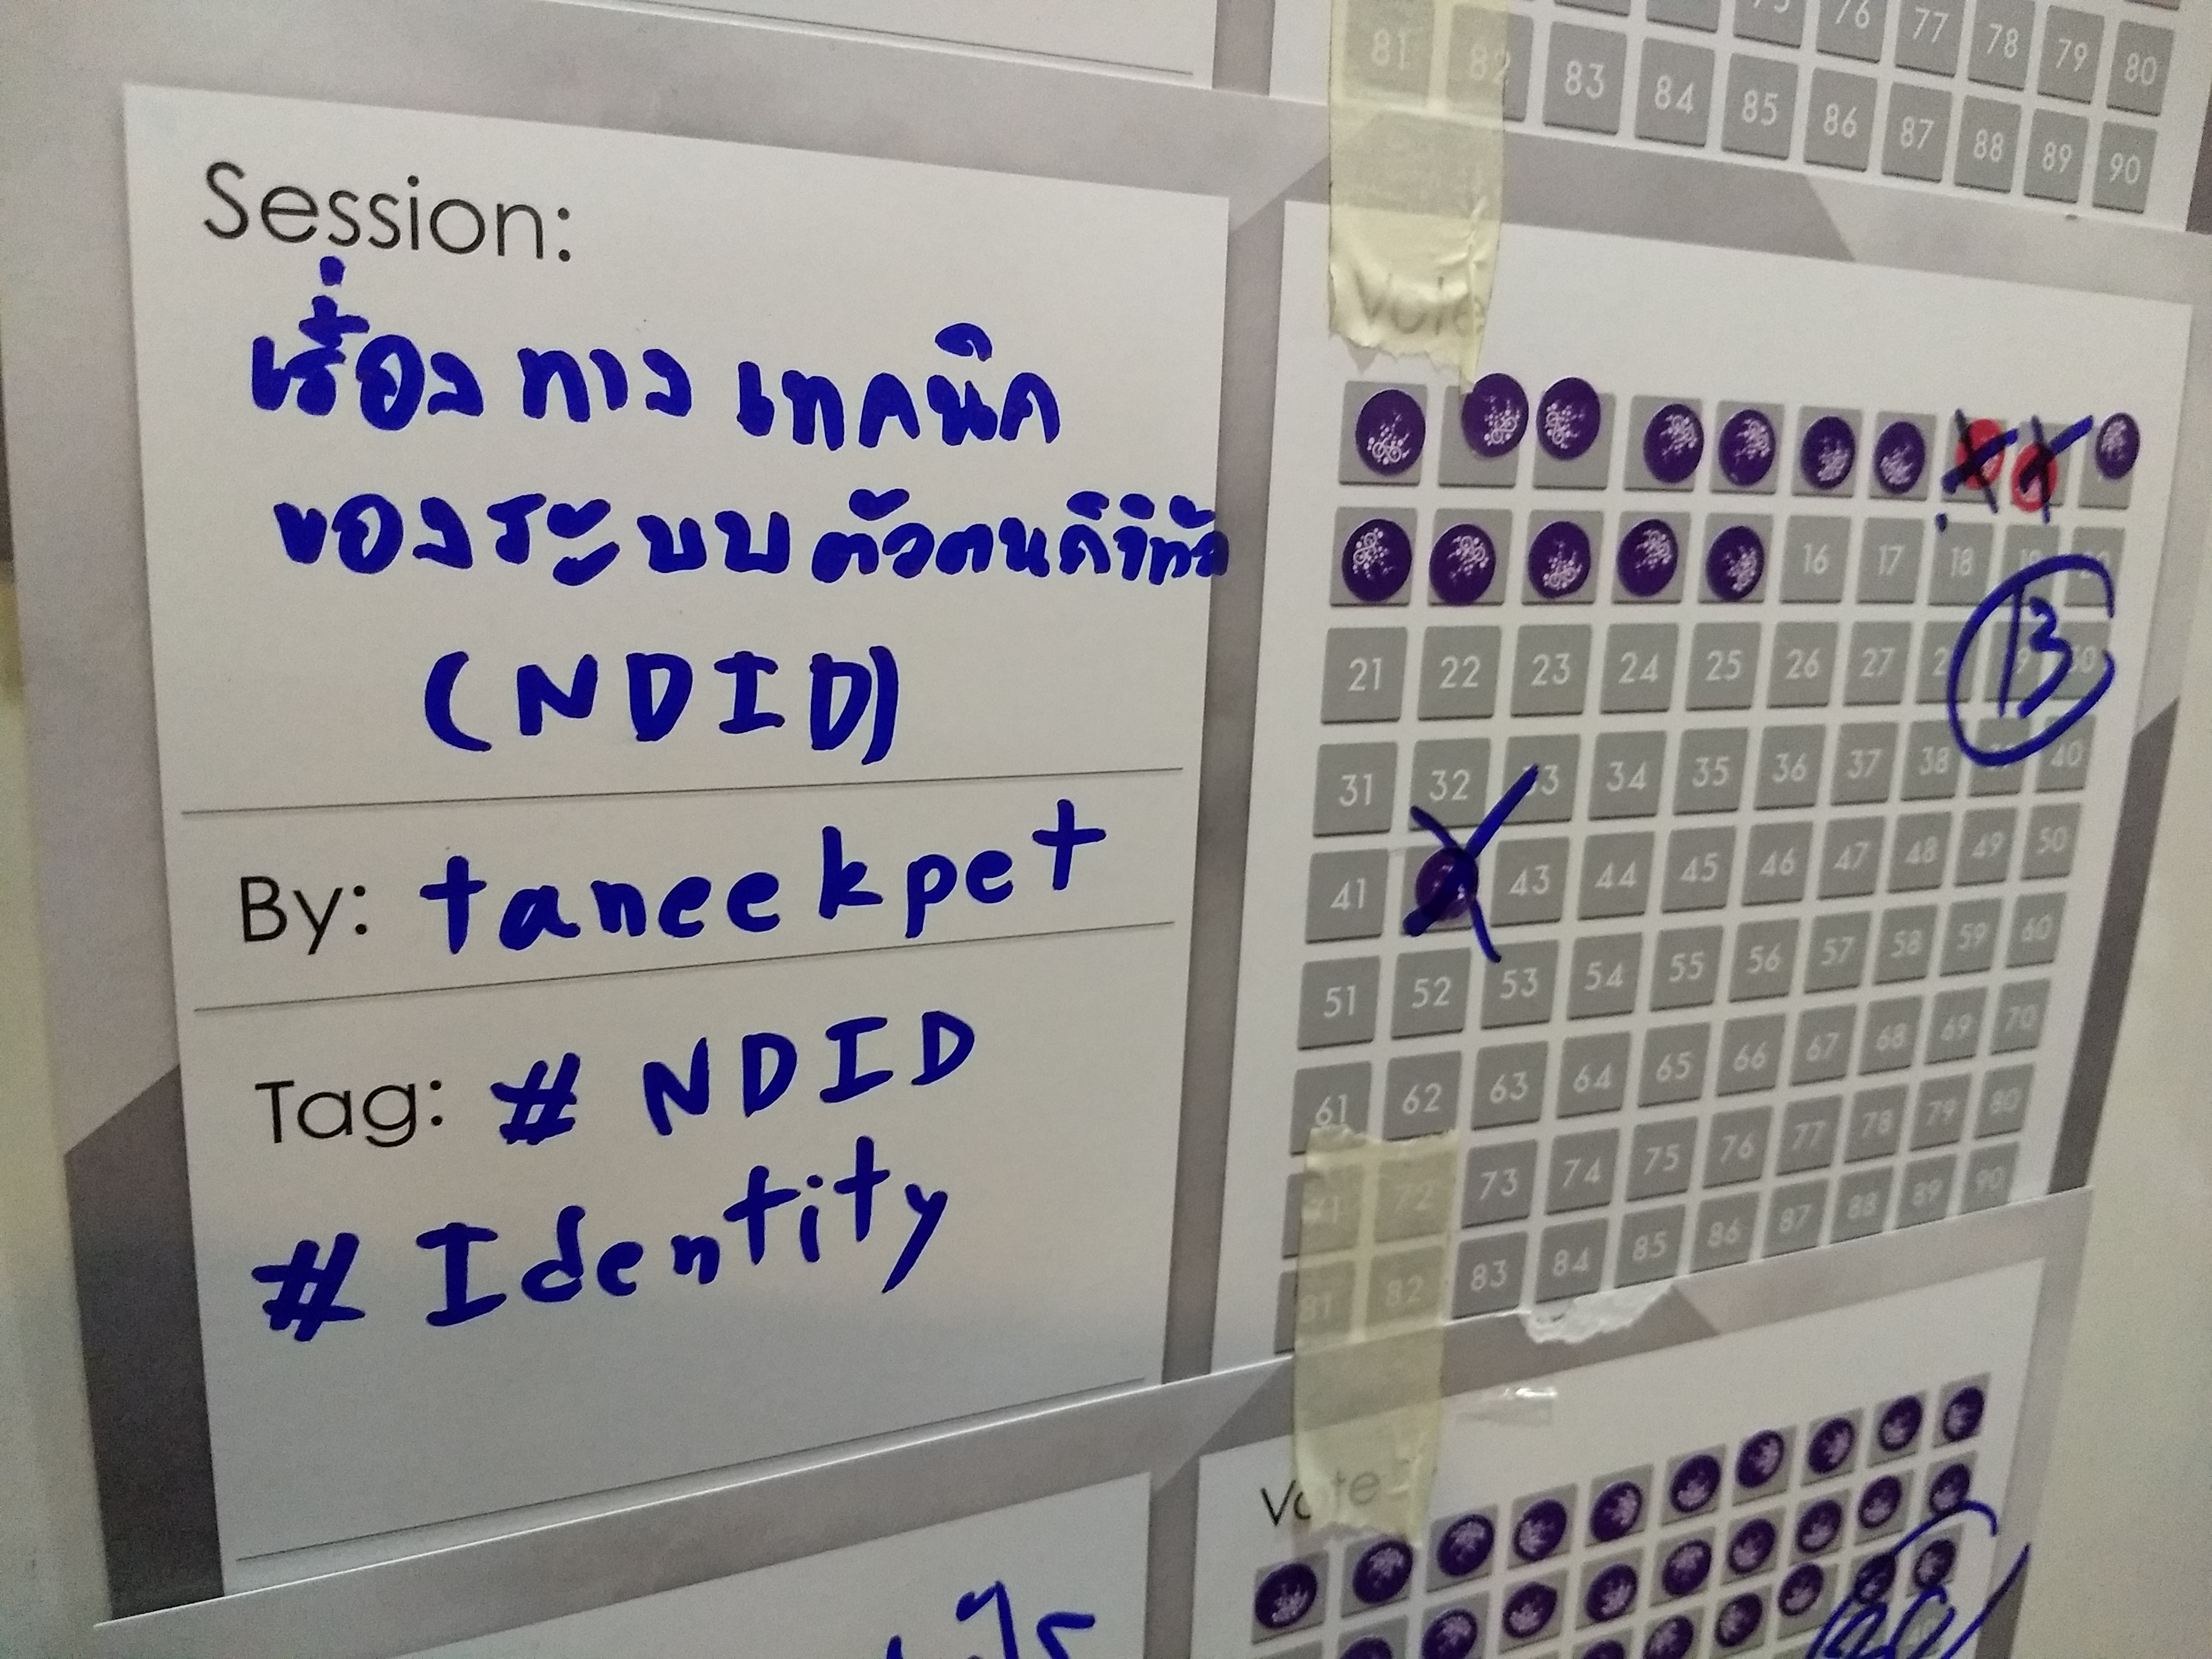 81 82 83 84 85 86 87 88 89 90
76 77 78 79 80
Session:
เรื่องทางเทคนิค
ของระบบตัวตนดิจิทัล
(NDID)
By: taneekpet
Tag: # NDID
# Identity
Vote
16 17 18 19 20
13
21 22 23 24 25 26 27 28 29 30
31 32 33 34 35 36 37 38 39 40
41 43 44 45 46 47 48 49 50
51 52 53 54 55 56 57 58 59 60
61 62 63 64 65 66 67 68 69 70
71 72 73 74 75 76 77 78 79 80
81 82 83 84 85 86 87 88 89 90
Vote